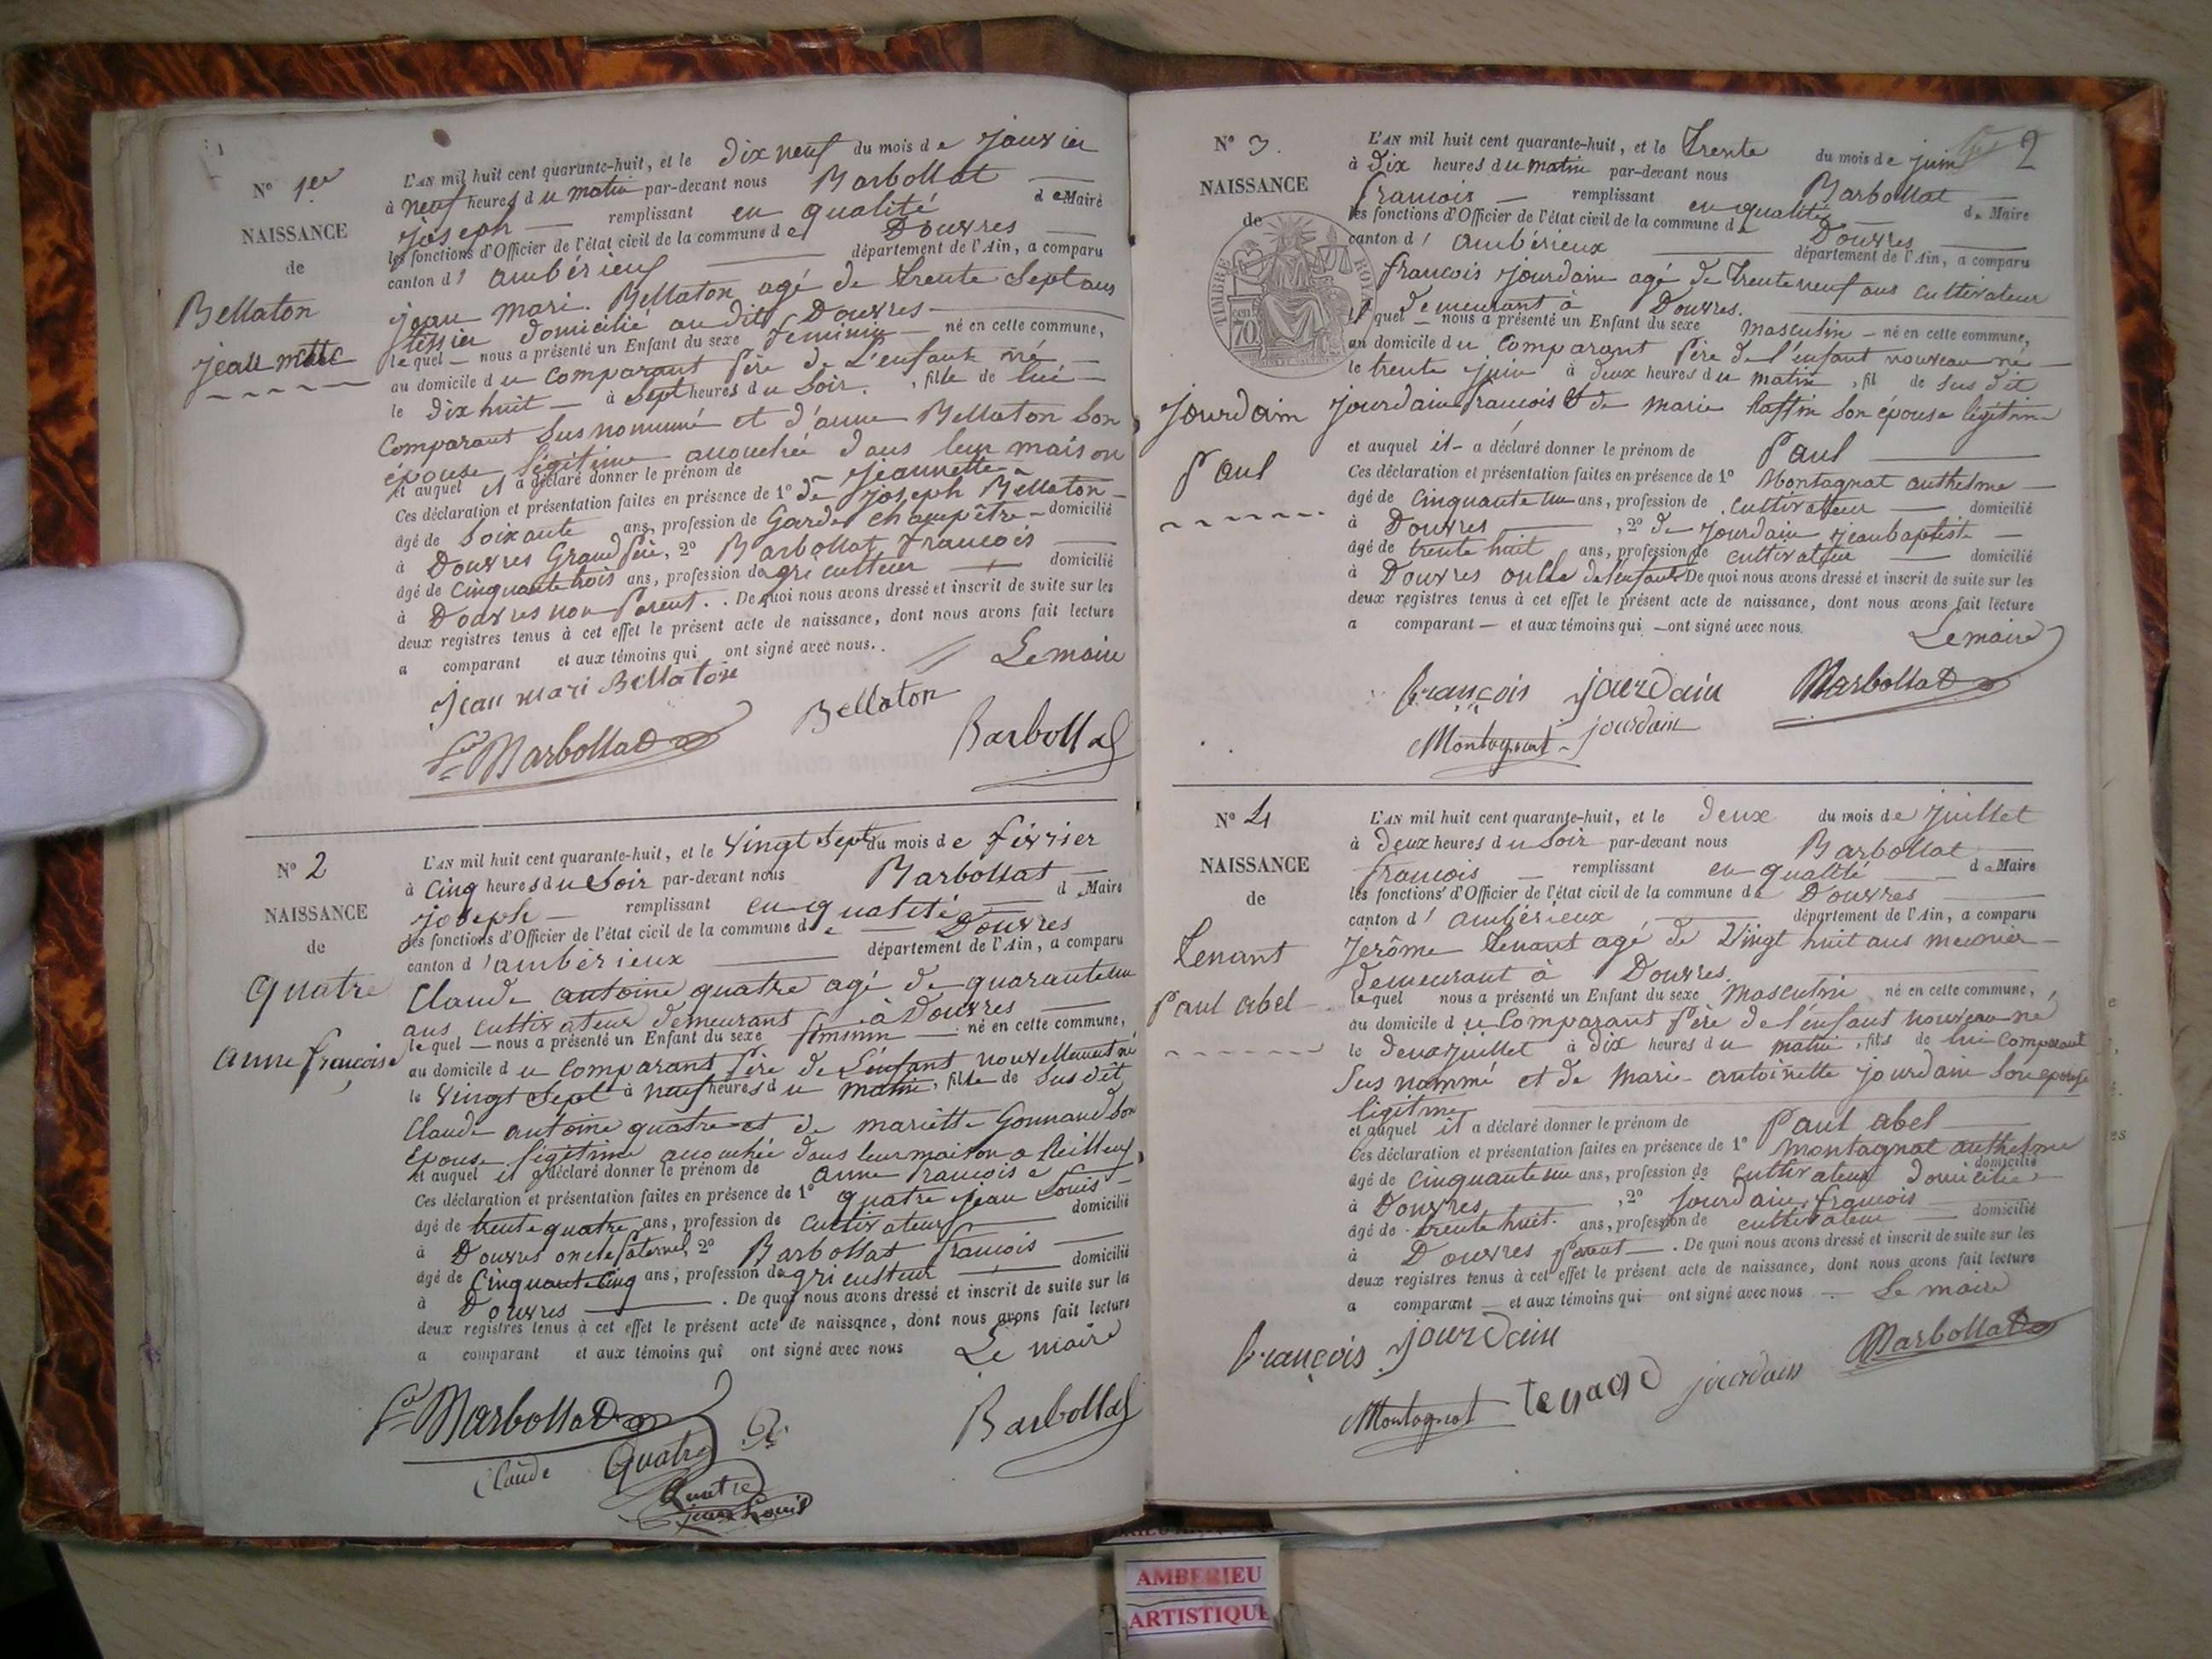 N° 1er
NAISSANCE
de
Bellaton
Jeannette
L'AN mil huit cent quarante-huit, et le Dix neuf du mois de Janvier
à neuf heures du matin par-devant nous Barbollat
Joseph — remplissant en qualité de Maire
les fonctions d'Officier de l'état civil de la commune de Douvres
canton d' ambérieux — département de l'Ain, a comparu
Jean Mari Bellaton agé de trente Sept ans
tessier domicilié au dit Douvres
lequel — nous a présenté un Enfant du sexe feminin — né en cette commune,
au domicile du Comparant Père de L'enfant né —
le dix huit — à Sept heures du Soir, fille de lui —
Comparant Sus nommé et d'anne Bellaton Son
épouse légitime accouchée dans leur maison
et auquel il a déclaré donner le prénom de Jeannette
Ces déclaration et présentation faites en présence de 1° de Joseph Bellaton —
âgé de Soixante ans, profession de Garde champêtre — domicilié
à Douvres Grand Père, 2° Barbollat francois
âgé de Cinquante trois ans, profession de agriculteur — domicilié
à Douvres non Parent. . De quoi nous avons dressé et inscrit de suite sur les
deux registres tenus à cet effet le présent acte de naissance, dont nous avons fait lecture
a comparant et aux témoins qui ont signé avec nous. . Le maire
Jean mari Bellaton
Bellaton
Barbollat
Barbollat
N° 2
NAISSANCE
de
Quatre
Anne françoise
L'AN mil huit cent quarante-huit, et le Vingt Sept du mois de février
à Cinq heures du Soir par-devant nous Barbollat
Joseph — remplissant en qualité — de Maire
les fonctions d'Officier de l'état civil de la commune de — Douvres
canton d' ambérieux — département de l'Ain, a comparu
Claude antoine quatre agé de quarante un
ans cultivateur demeurant à Douvres
lequel — nous a présenté un Enfant du sexe féminin — né en cette commune,
au domicile du Comparant Père de L'enfant nouvellement né
le Vingt Sept à neuf heures du matin, fille de Sus dit
Claude antoine quatre et de mariette Gonnand Son
épouse légitime accouchée dans leur maison a
et auquel il a déclaré donner le prénom de anne francoise
Ces déclaration et présentation faites en présence de 1° quatre jean Louis —
âgé de trente quatre ans, profession de cultivateur — domicilié
à Douvres oncle Paternel, 2° Barbollat francois
âgé de Cinquante Cinq ans, profession de agriculteur — domicilié
à Douvres — . De quoi nous avons dressé et inscrit de suite sur les
deux registres tenus à cet effet le présent acte de naissance, dont nous avons fait lecture
a comparant et aux témoins qui ont signé avec nous Le maire
Barbollat
Claude Quatre
Barbollat
Quatre
jean Louis
2
N° 3.
NAISSANCE
de
TIMBRE ROYAL
70
Jourdain
Paul
L'AN mil huit cent quarante-huit, et le Trente du mois de juin
à Dix heures du matin par-devant nous Barbollat
francois — remplissant en qualité de Maire
les fonctions d'Officier de l'état civil de la commune de Douvres
canton d' ambérieux — département de l'Ain, a comparu
francois Jourdain agé de trente neuf ans cultivateur
demeurant à Douvres.
lequel — nous a présenté un Enfant du sexe masculin — né en cette commune,
au domicile du Comparant Père de l'enfant nouveau né —
le trente juin à deux heures du matin, fil de Sus dit
Jourdain francois & de marie Son épouse légitime
et auquel il — a déclaré donner le prénom de Paul
Ces déclaration et présentation faites en présence de 1° Montagnat anthelme —
âgé de Cinquante un ans, profession de cultivateur — domicilié
à Douvres — , 2° de Jourdain jean baptiste —
âgé de trente huit ans, profession de cultivateur — domicilié
à Douvres oncle de l'enfant De quoi nous avons dressé et inscrit de suite sur les
deux registres tenus à cet effet le présent acte de naissance, dont nous avons fait lecture
a comparant — et aux témoins qui — ont signé avec nous. Le maire
françois jourdain Barbollat
Montagnat jourdain
N° 4
NAISSANCE
de
Tenant
Paul abel
L'AN mil huit cent quarante-huit, et le Deux du mois de Juillet
à Deux heures du Soir par-devant nous Barbollat
francois — remplissant en qualité — de Maire
les fonctions d'Officier de l'état civil de la commune de Douvres
canton d' ambérieux — département de l'Ain, a comparu
Jérôme Tenant agé de Vingt huit ans meunier —
demeurant à Douvres.
lequel nous a présenté un Enfant du sexe Masculin né en cette commune,
au domicile du Comparant Père de l'enfant nouveau né
le deux juillet à dix heures du matin, fils de lui Comparant
Sus nommé et de Marie antoinette jourdain Son épouse
légitime
et auquel il a déclaré donner le prénom de Paul abel
Ces déclaration et présentation faites en présence de 1° Montagnat anthelme
âgé de Cinquante un ans, profession de cultivateur domicilié domicilié
à Douvres — , 2° Jourdain, francois
âgé de trente huit. ans, profession de cultivateur — domicilié
à Douvres Parent — . De quoi nous avons dressé et inscrit de suite sur les
deux registres tenus à cet effet le présent acte de naissance, dont nous avons fait lecture
a comparant — et aux témoins qui ont signé avec nous — Le maire
françois jourdain Barbollat
Montagnat tenand jourdain
AMBERIEU
ARTISTIQUE